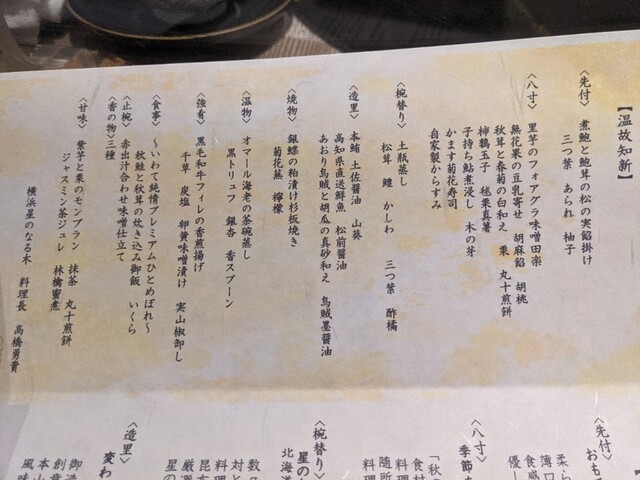 【温故知新】
〈先付〉 煮鮑と鮑茸の松の実餡掛け
三つ葉 あられ 柚子
〈八寸〉 里芋のフォアグラ味噌田楽
無花果の豆乳寄せ 胡麻餡 胡桃
秋茸と春菊の白和え 栗 丸十煎餅
柿鶉玉子 毬栗真薯
子持ち鮎煮浸し 木の芽
かます菊花寿司
自家製からすみ
〈椀替り〉 土瓶蒸し
松茸 鱧 かしわ 三つ葉 酢橘
〈造里〉 本鮪 土佐醤油 山葵
高知県直送鮮魚 松前醤油
あおり烏賊と胡瓜の真砂和え 烏賊墨醤油
〈焼物〉 銀鰈の粕漬け杉板焼き
菊花蕪 檸檬
〈温物〉 オマール海老の茶碗蒸し
黒トリュフ 銀杏 香スプーン
〈強肴〉 黒毛和牛フィレの香煎揚げ
千草 炭塩 卵黄味噌漬け 実山椒卸し
〈食事〉 〜いわて純情プレミアムひとめぼれ〜
秋鮭と秋茸の炊き込み御飯 いくら
〈止椀〉 赤出汁合わせ味噌仕立て
〈香の物〉 三種
〈甘味〉 紫芋と栗のモンブラン 抹茶 丸十煎餅
ジャスミン茶ジュレ 林檎蜜煮
横浜星のなる木 料理長 高橋勇貴
〈先付〉 おも
柔ら
薄口
食感
優し
〈八寸〉
季節
「秋の
食材
料理
随所
料理
〈椀替り〉
星の
北海道
数々
対と
料理
昆布
厳選
星の
〈造里〉
変わ
御造
創意
本山
風味